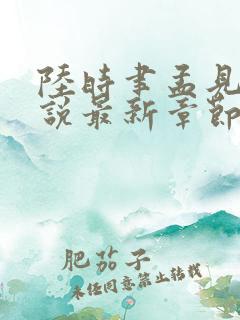 陸時聿孟見
說最新章節
肥茄子
未任同意禁止转载